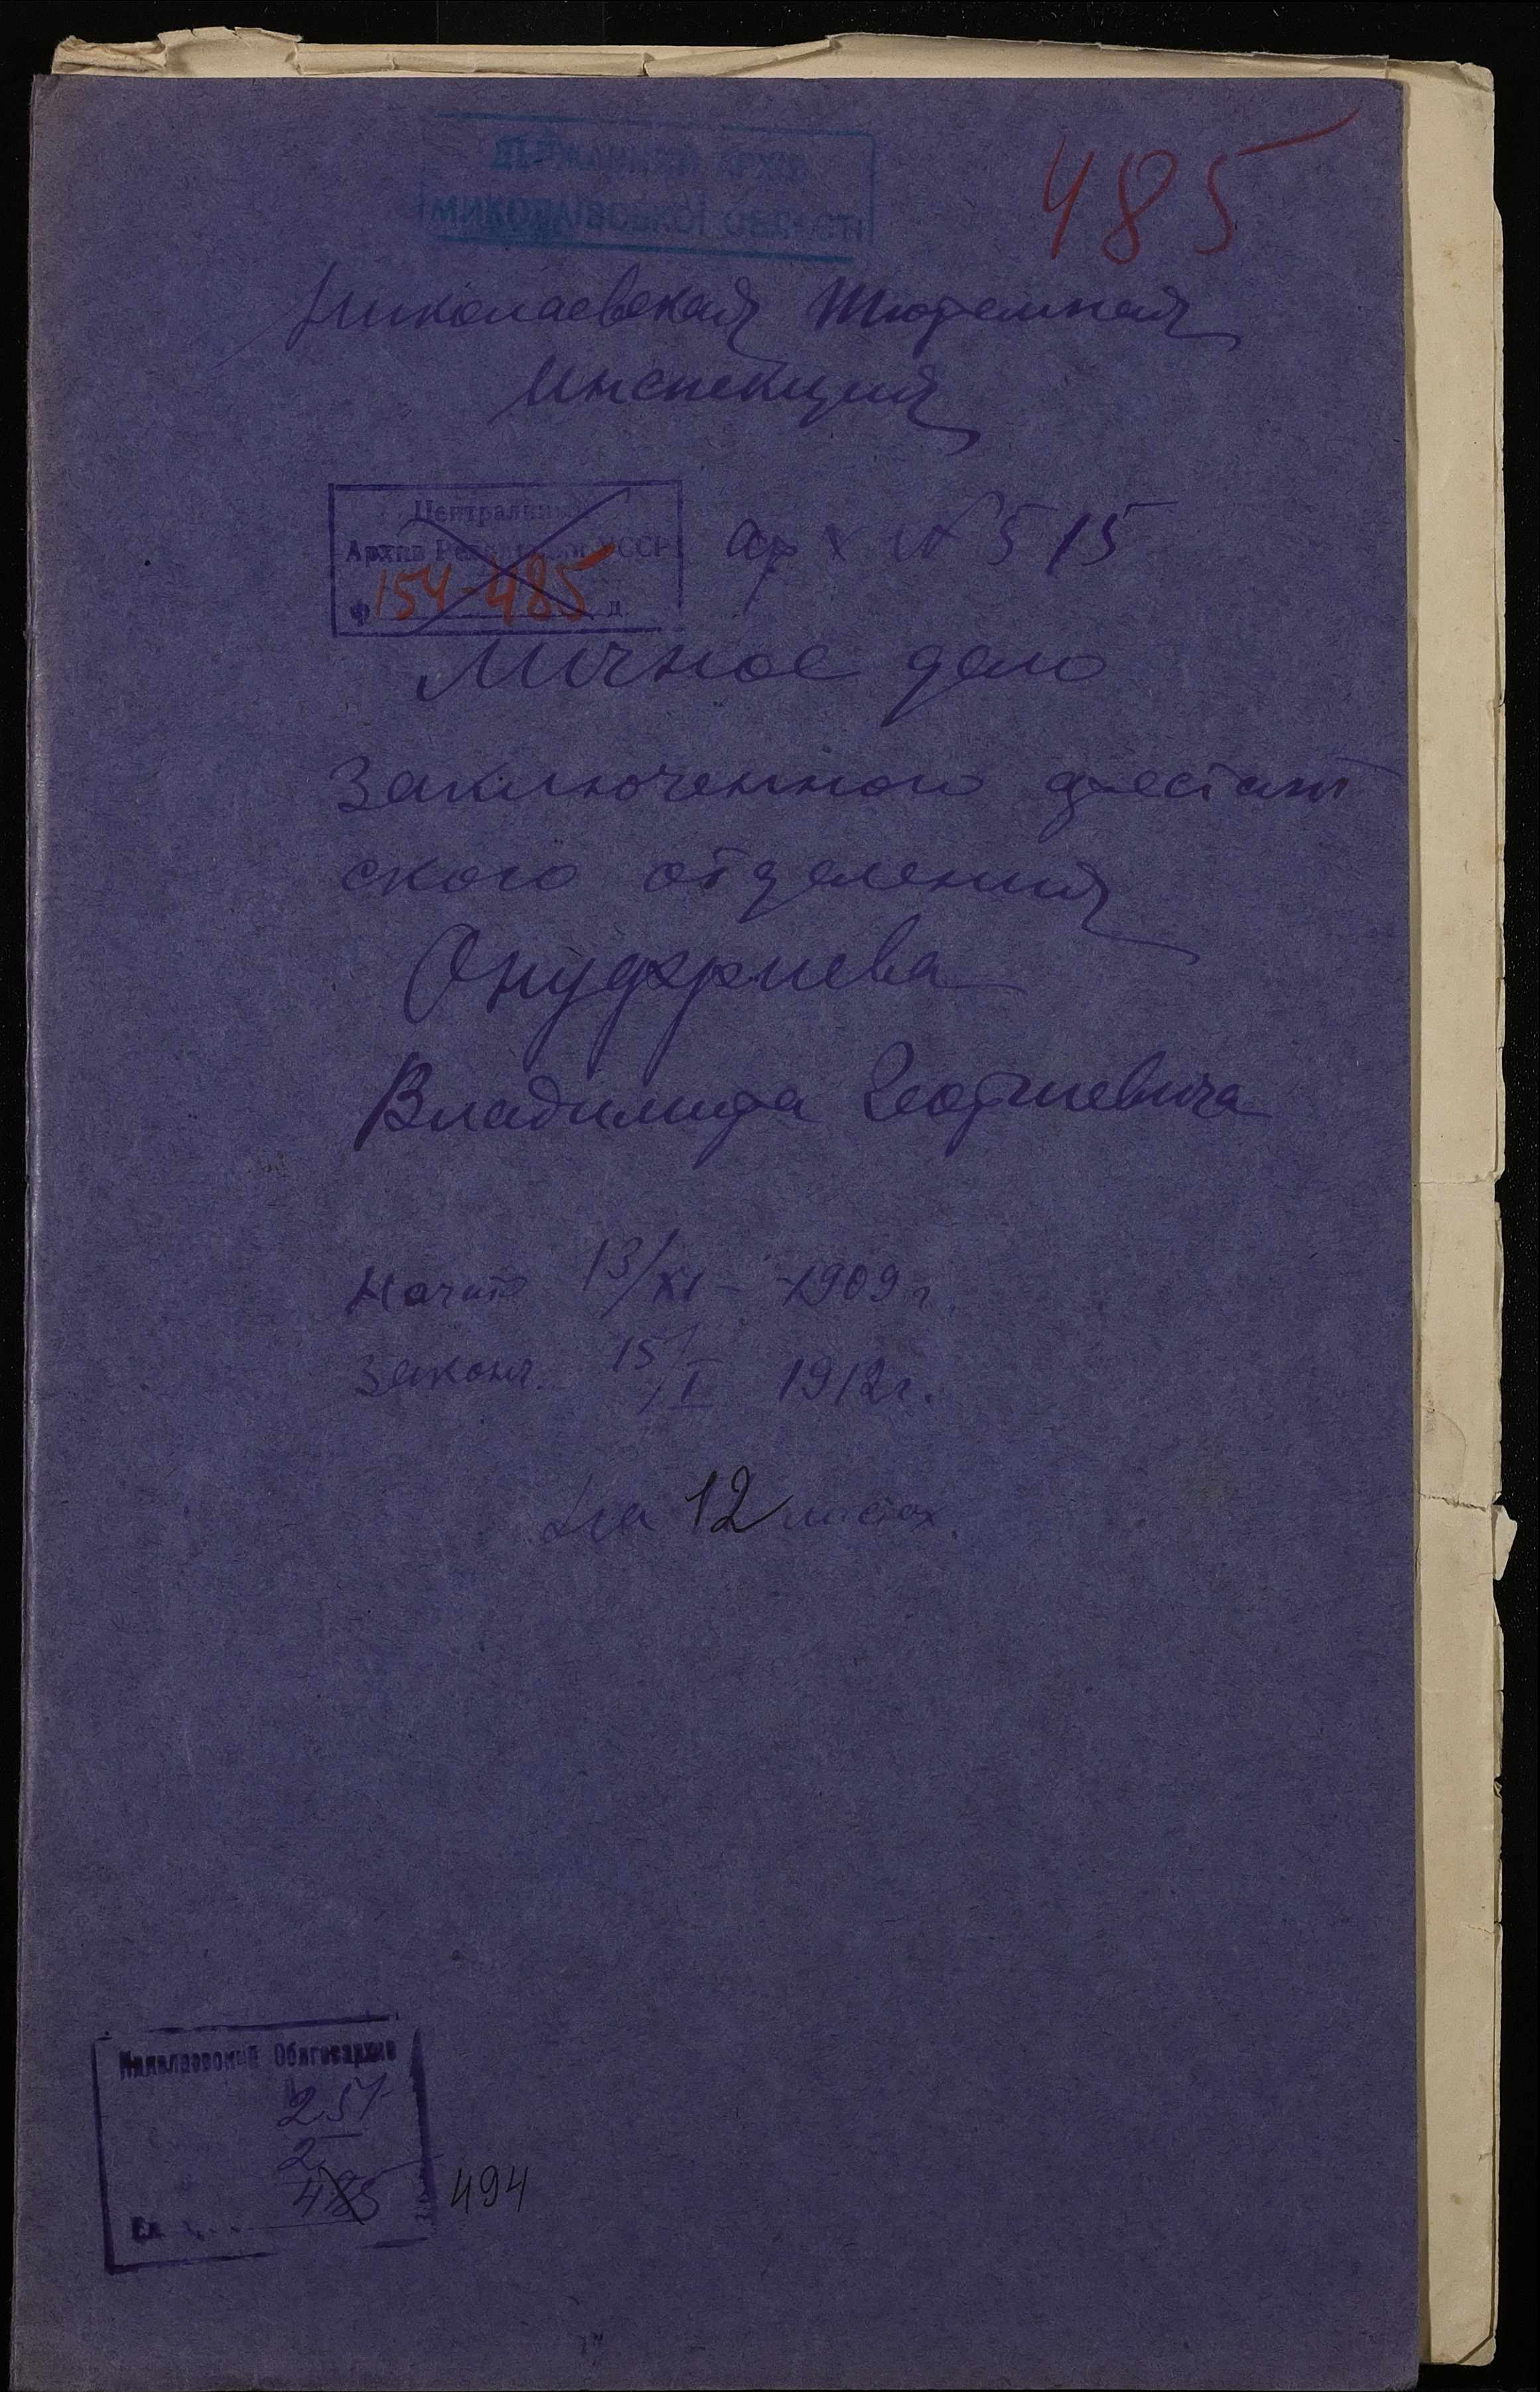 ДЕРЖАВНИЙ АРХІВ
МИКОЛАЇВСЬКОЇ ОБЛАСТІ
485
Николаевская Тюремная
Инспекция
Центральн
Архив Революции УССР
ф 154-485 д
арх № 515
Личное дело
Заключенного арестант
ского отделения
Онуфриева
Владимира Георгиевича
Начато 13/XI - 1909 г.
Законч. 15/I 1912 г.
На 12 листах.
Николаевский Облгосархив
2
485
494
Ед